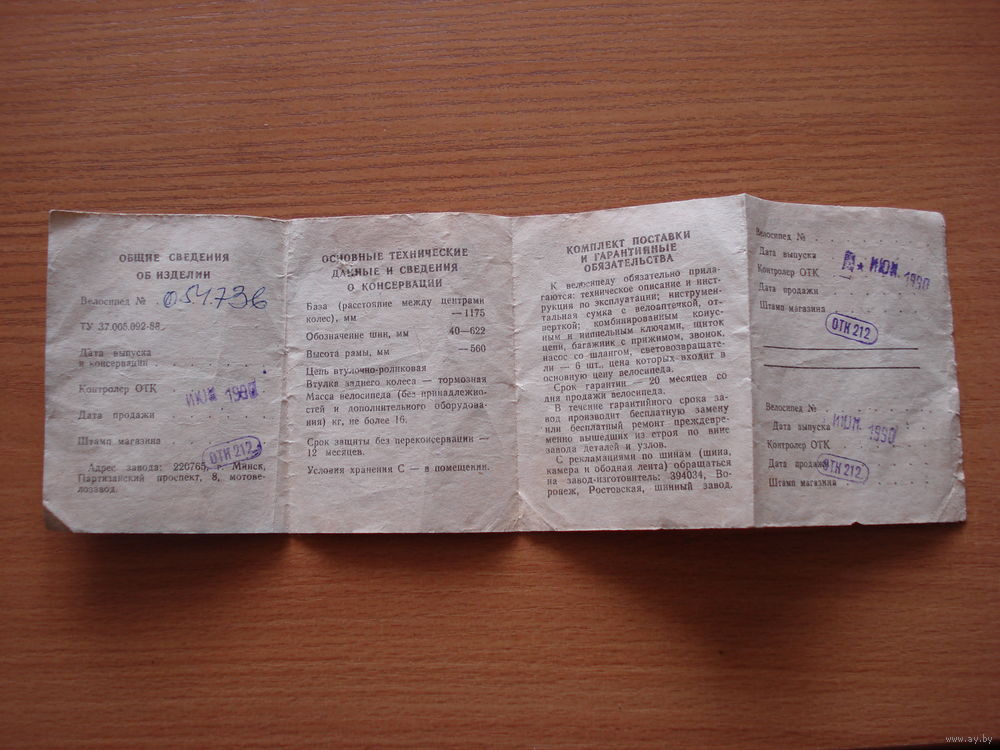 ОБЩИЕ СВЕДЕНИЯ
ОБ ИЗДЕЛИИ
Велосипед № 054736
ТУ 37.005.092-88
Дата выпуска
и консервации
ИЮН 1990
Контролер ОТК
Дата продажи
Штамп магазина
ОТК 212
Адрес завода: 220765, г. Минск,
Партизанский проспект, 8, мотове-
лозавод.
ОСНОВНЫЕ ТЕХНИЧЕСКИЕ
ДАННЫЕ И СВЕДЕНИЯ
О КОНСЕРВАЦИИ
База (расстояние между центрами
колес), мм —1175
Обозначение шин, мм 40—622
Высота рамы, мм —560
Цепь втулочно-роликовая
Втулка заднего колеса — тормозная
Масса велосипеда (без принадлежно-
стей и дополнительного оборудова-
ния) кг, не более 16.
Срок защиты без переконсервации —
12 месяцев.
Условия хранения С — в помещении.
КОМПЛЕКТ ПОСТАВКИ
И ГАРАНТИЙНЫЕ
ОБЯЗАТЕЛЬСТВА
К велосипеду обязательно прила-
гаются: техническое описание и инст-
рукция по эксплуатации; инструмен-
тальная сумка с велоаптечкой, от-
верткой; комбинированным конус-
ным и ниппельным ключами, щиток
цепи, багажник с прижимом, звонок,
насос со шлангом, световозвращате-
ли — 6 шт., цена которых входит в
основную цену велосипеда.
Срок гарантии — 20 месяцев со
дня продажи велосипеда.
В течение гарантийного срока за-
вод производит бесплатную замену
или бесплатный ремонт преждевре-
менно вышедших из строя по вине
завода деталей и узлов.
С рекламациями по шинам (шина,
камера и ободная лента) обращаться
на завод-изготовитель: 394034, Во-
ронеж, Ростовская, шинный завод.
Велосипед №
Дата выпуска ИЮН. 1990
Контролер ОТК
Дата продажи
Штамп магазина
ОТК 212
Велосипед №
Дата выпуска ИЮН. 1990
Контролер ОТК
Дата продажи ОТК 212
Штамп магазина
www.ay.by